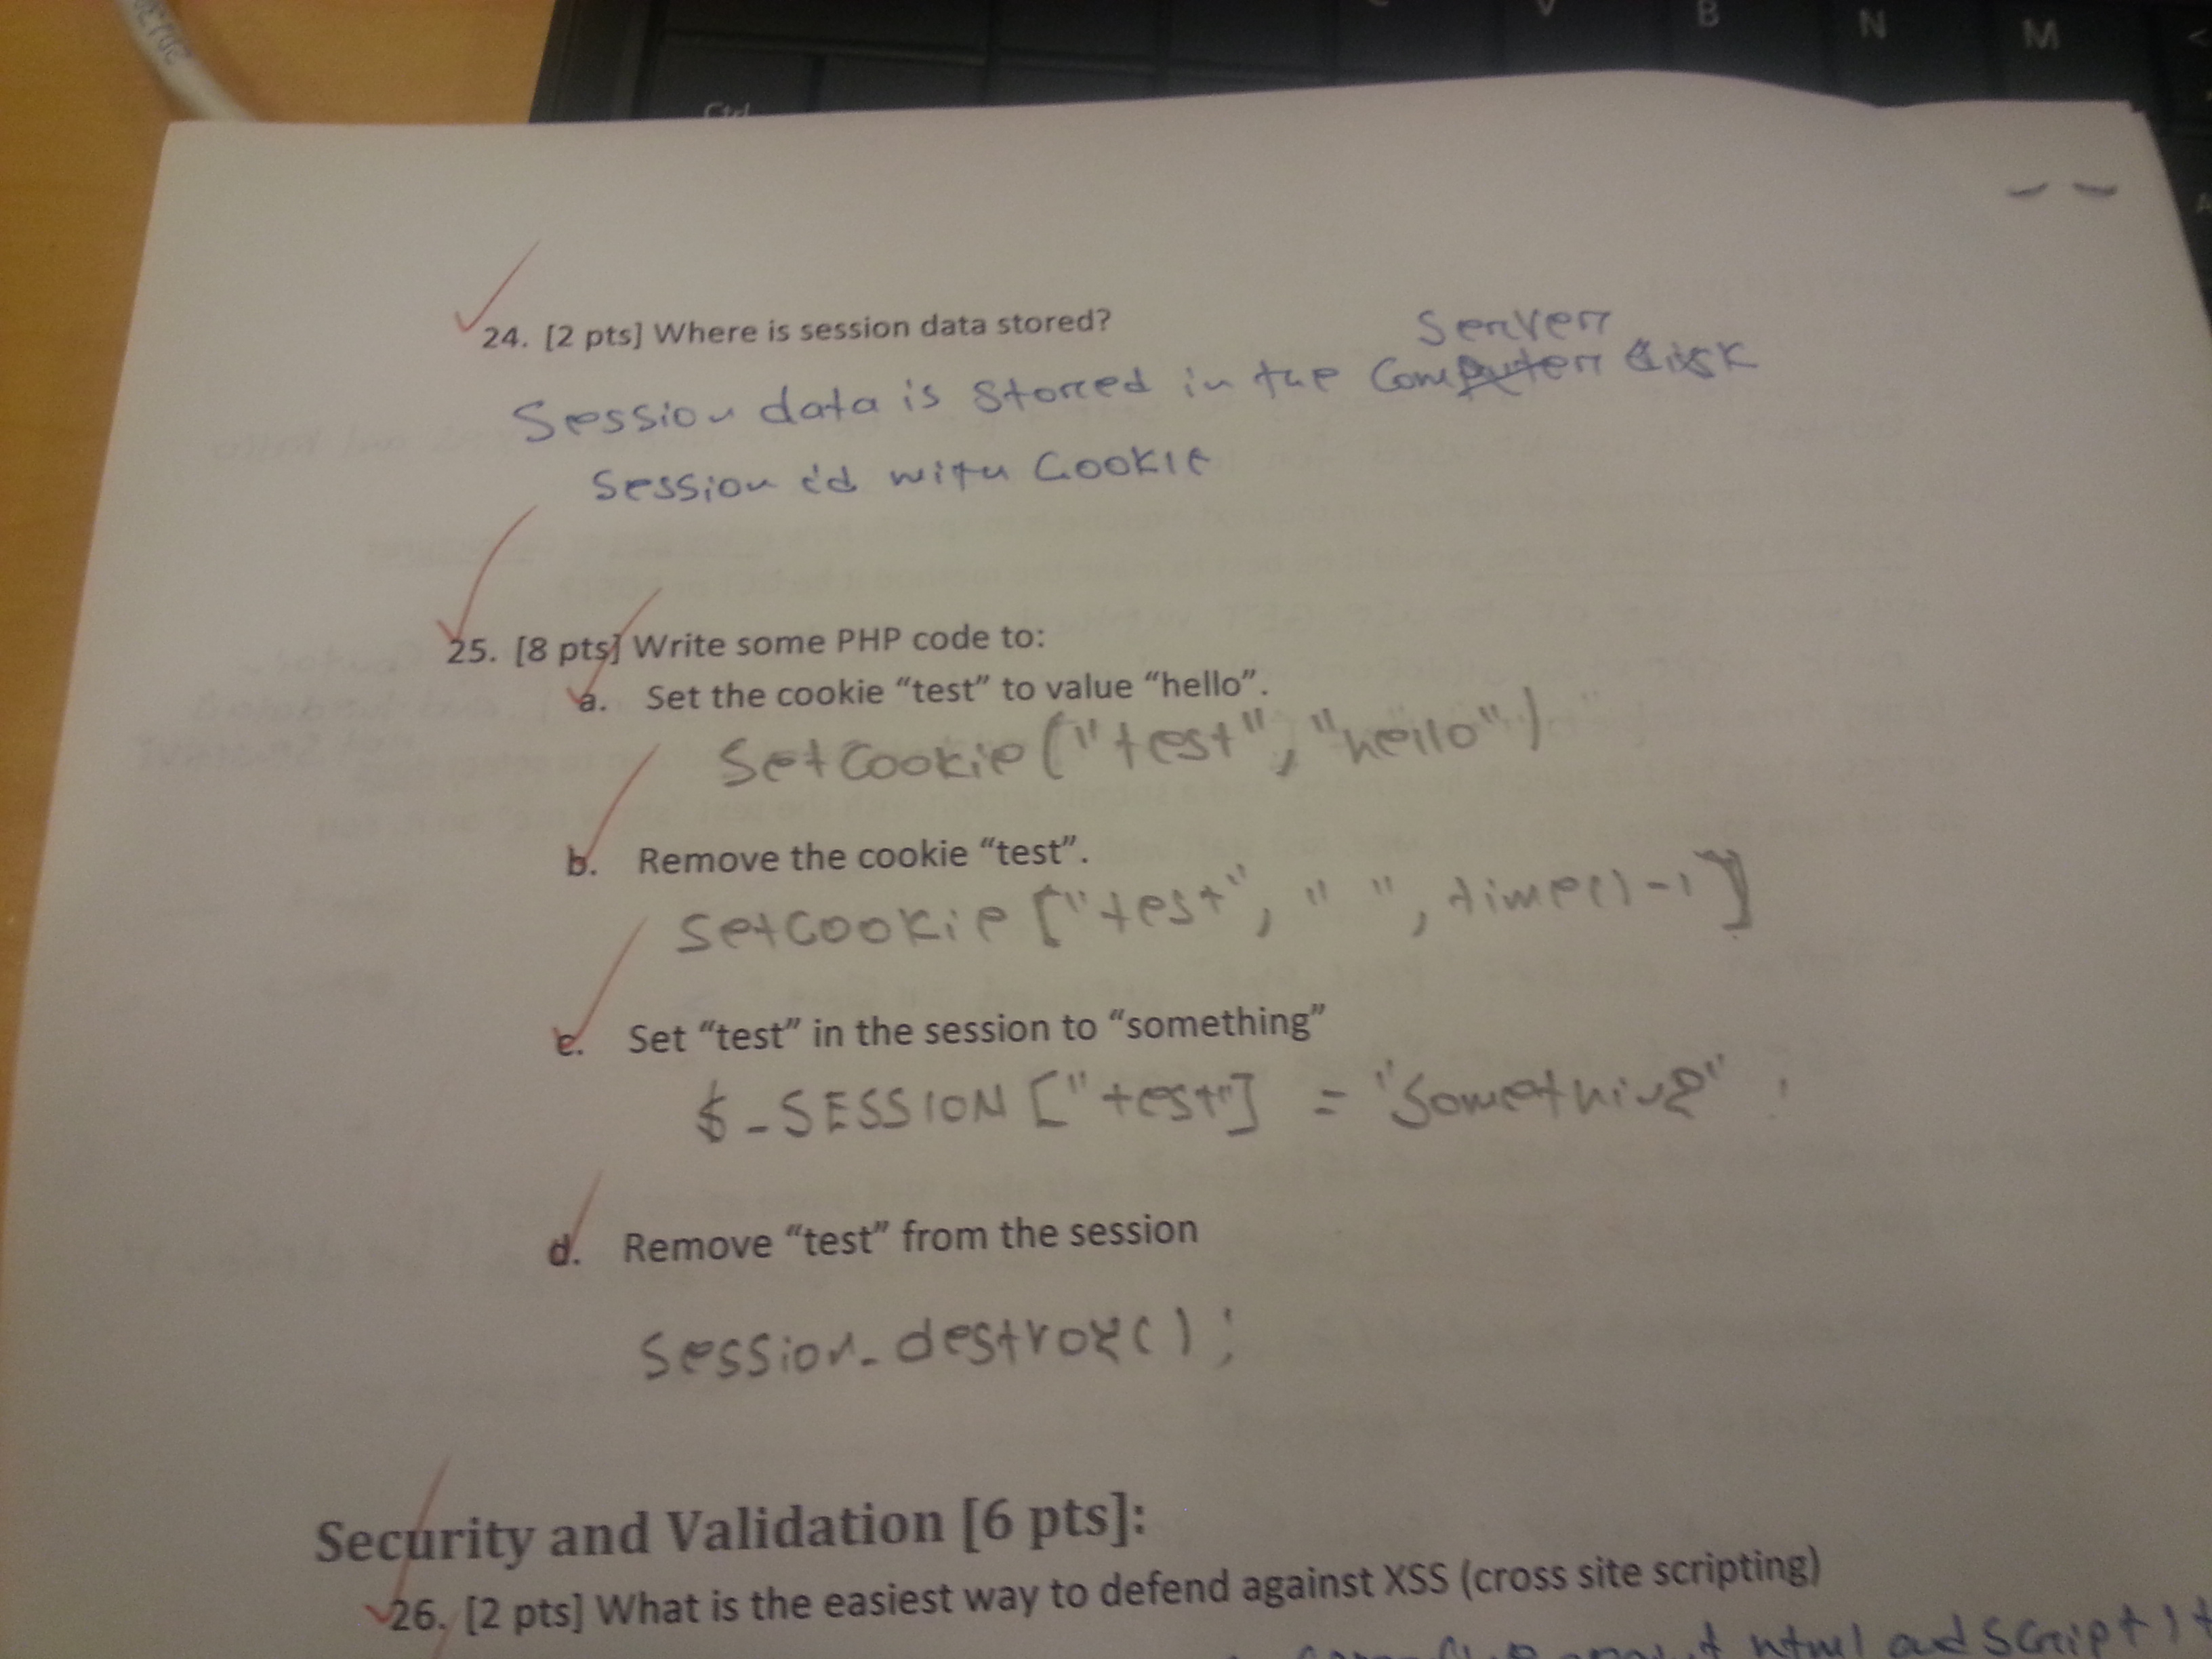 V B N M <
Ctrl
24. [2 pts] Where is session data stored?
Server
Session data is stored in the Computer disk
Session id with Cookie
25. [8 pts] Write some PHP code to:
a. Set the cookie “test” to value “hello”.
SetCookie ("test", "hello")
b. Remove the cookie “test”.
SetCookie ["test", " ", time()-1]
c. Set “test” in the session to “something”
$_SESSION ["test"] = "Something" ;
d. Remove “test” from the session
Session_destroy();
Security and Validation [6 pts]:
26. [2 pts] What is the easiest way to defend against XSS (cross site scripting)
html and Script